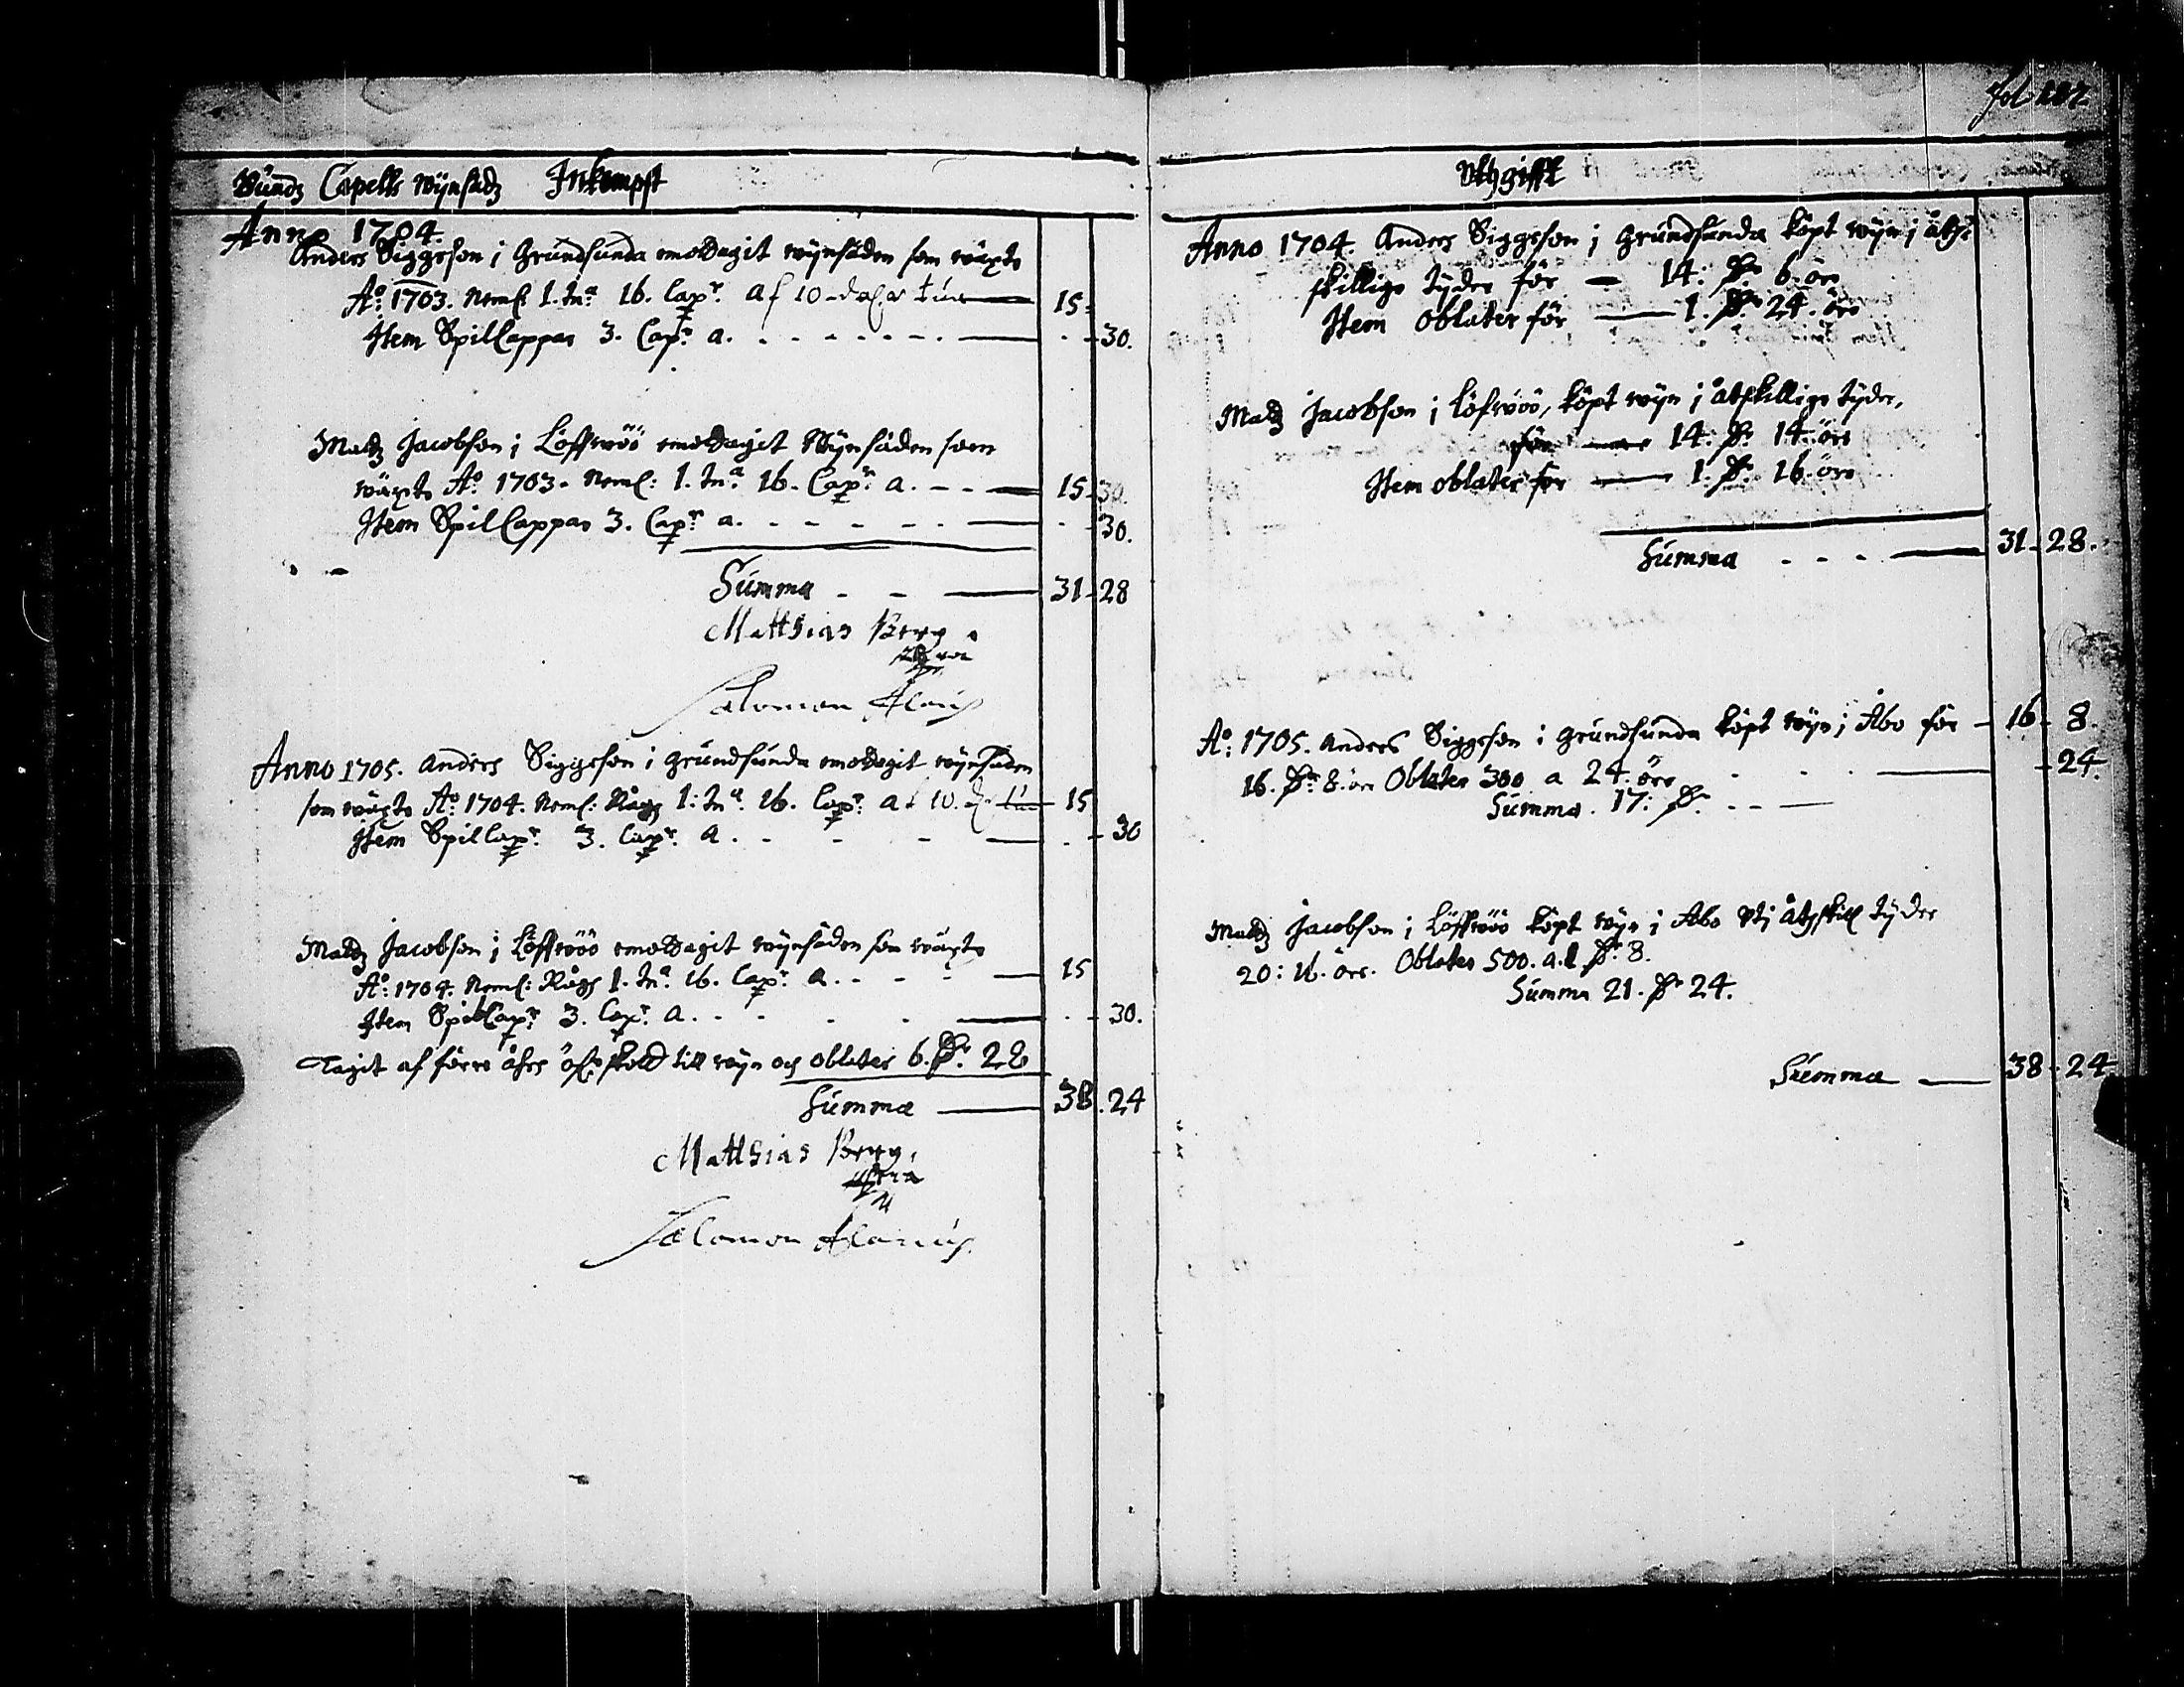 Sundz Capells wÿnsädz Inkompst
Anno 1704.
Anders Siggeson i Grundsunda emottagit wÿnsäden som wäxte
A:o 1703. Neml: 1. tn:a 16. Cap:r af 10-dal:r tun 15:
Item SpilCappar 3. Cap:r a. - - - - - - 30.
Matz Jacobson i Löffwöö emottagit Wÿnsäden som
wäxte A:o 1703. Neml: 1. tn:a 16. Cap:r a. - - 15-
Item SpilCappar 3. Cap:r a. - - - - - 30.
Summa - - 31-28
Matthias Berg
Salomon Alanus
Anno 1705. Anders Siggeson i Grundsunda emottagit wÿnsäden
som wäxte A:o 1704. Neml: Rågh 1: tn:a 16. Cap:r a 10. 15
Item SpilCap:r 3. Cap:r a. - - - - 30
Matz Jacobson i Löffwöö emottagit wÿnsäden som wäxte
A:o 1704. Neml: Rågh 1. tn:a 16. Cap:r a. - - - 15
Item SpilCap:r 3. Cap:r a. - - - - 30.
Tagit af förre åhrs till wÿn och oblater 6. D:r 28
Summa 38.24
Matthias Berg,
Salomon Alanus
Fol
Vthgifft
Anno 1704. Anders Siggeson i Grundsunda köpt wÿn i åth
skillige tÿder för — 14: D:r 6 öre
Item oblater för — 1. D:r 24. öre
Matz Jacobson i Löfwöö, köpt wÿn i åtskillige tÿder,
för 14: D:r 14 öre
Item oblater för — 1. D:r 16. öre
Summa - - - 31-28.
A:o 1705. Anders Siggeson i Grundsunda köpt wÿn i Åbo för - 16- 8.
16. D:r 8. öre Oblater 300 a 24. öre - - - -24.
Summa. 17: D:r - - —
Matz Jacobson i Löffwöö köpt wÿn i Åbo åthskill tÿder
20: 16. öre. Oblater 500. a. 1 D:r 8.
Summa 21. D:r 24.
Summa — 38.24.